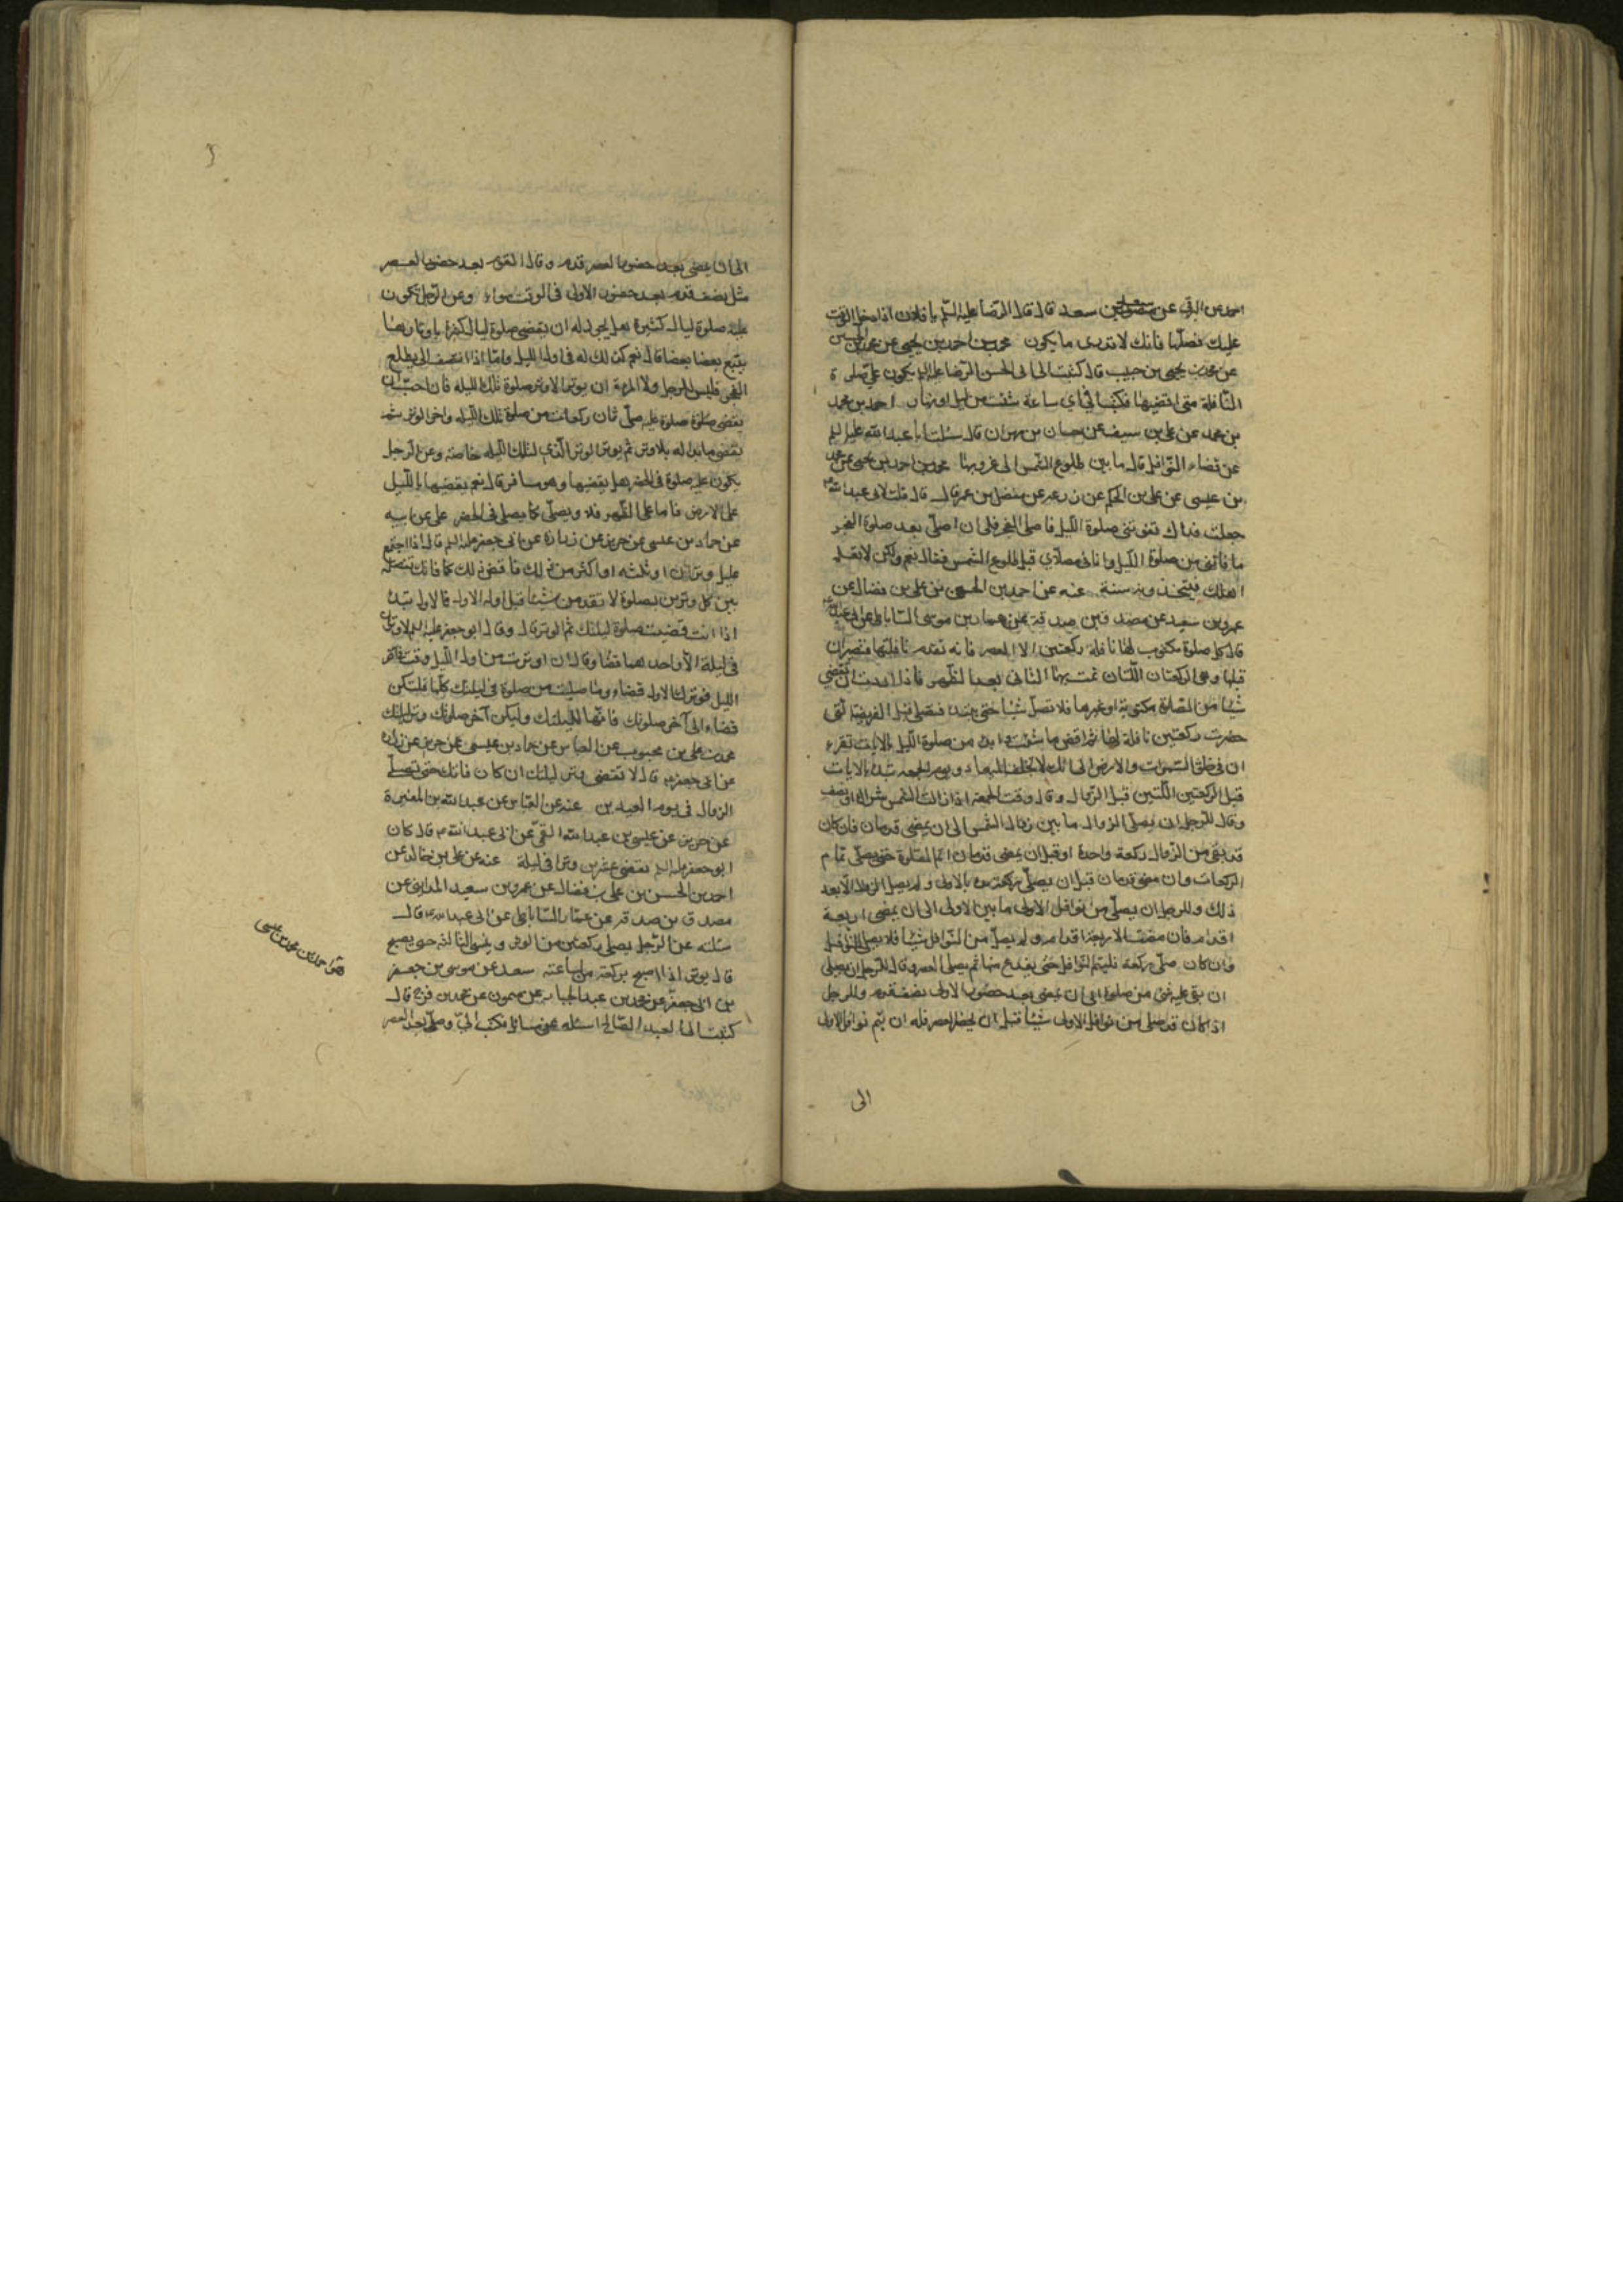 احمد عن البرقي عن سعد بن سعد قال قال الرضا عليه السلم يا فلان اذا دخل الوقت
عليك فصلها فانك لا تدرى ما يكون محمد بن احمد بن يحيى عن محمد بن الحسين
عن محمد بن يحيى بن حبيب قال كتبت الى ابى الحسن الرضا عليه السلم يكون على صلوة
النافلة متى اقضيها فكتب فى اي ساعة شئت من ليل او نهار احمد بن محمد
بن محمد عن على بن سيف عن حسان بن مهران قال سئلت ابا عبد الله عليه السلم
عن قضاء النوافل قال ما بين طلوع الشمس الى غروبها محمد بن احمد بن يحيى عن محمد
بن عيسى عن على بن الحكم عن زرعه عن مفضل بن عمر قال قال قلت لابى عبد الله
جعلت فداك تفوتنى صلوة الليل فاصلى الفجر فلى ان اصلى بعد صلوة الفجر
ما فاتنى من صلوة الليل وانا فى مصلاي قبل طلوع الشمس فقال نعم ولكن لا تعلم
اهلك فيتخذونه سنة عنه عن احمد بن الحسن بن على بن فضال عن
عمرو بن سعيد عن مصدق بن صدقة عن عمار بن موسى الساباطى عن ابى عبد الله
قال كل صلوة مكتوب لها نافلة ركعتين الا العصر فانه تقدم نافلتها فتصيران
قبلها وهى الركعتان اللتان تمت بهما الثمانى بعد الظهر فاذا اردت ان تقضي
شيئا من الصلوة مكتوبة او غيرها فلا تصل شيئا حتى تبدء فتصلى قبل الفريضة التى
حضرت ركعتين نافلة لها ثم اقض ما شئت وابدء من صلوة الليل بالايات تقرء
ان فى خلق السموات والارض الى انك لا تخلف الميعاد ويوم الجمعه تبدء بالايات
قبل الركعتين اللتين قبل الزوال وقال وقت الجمعة اذا زالت الشمس شراك او نصف
وقال للرجل ان يصلى الزوال ما بين زوال الشمس الى ان يمضى قدمان فان كان
قد بقى من الزوال ركعة واحدة او قبل ان يمضى قدمان اتم الصلوة حتى يصلى تمام
الركعات وان مضى قدمان قبل ان يصلى ركعة بدء بالاولى ولم يصل الزوال الا بعد
ذلك وللرجل ان يصلى من نوافل الاولى ما بين الاولى الى ان يمضى اربعة
اقدام فان مضت الاربعة اقدام ولم يصل من النوافل شيئا فلا يصلى النوافل
وان كان صلى ركعة فليتم النوافل حتى يفرغ منها ثم يصلى العصر وقال للرجل ان يصلى
ان بقى عليه شئ من صلوة الى ان يمضى بعد حضور الاولى نصف قدم وللرجل
اذا كان قد صلى من نوافل الاولى شيئا قبل ان يحضر العصر فله ان يتم نوافل الاولى
الى
الى ان يمضى بعد حضور العصر قدم وقال القدم بعد حضور العصر
مثل نصف قدم بعد حضور الاولى فى الوقت سواء وعن الرجل تكون
عليه صلوة ليال كثيرة هل يجوز له ان يقضى صلوة ليال كثيرة باوتارها
يتبع بعضا بعضا قال نعم كذلك له فى اول الليل واما اذا انتصف الى يطلع
الفجر فليس للرجل ولا المرءة ان يوتر الا وتر صلوة تلك الليله فان احب ان
يقضى صلوة عليه صلى ثمان ركعات من صلوة تلك الليله واخر الوتر ثم
يقضى ما بدا له بلا وتر ثم يوتر الوتر الذى لتلك الليله خاصة وعن الرجل
يكون عليه صلوة فى الحضر هل يقضيها وهو مسافر قال نعم يقضيها بالليل
على الارض فاما على الظهر فلا ويصلى كما يصلى فى الحضر على عن ابيه
عن حماد بن عيسى عن حريز عن زرارة عن ابى جعفر عليه السلم قال اذا اجتمع
عليك وتران او ثلثه او اكثر من ذلك فاقض ذلك كما فاتك تفصل
بين كل وترين بصلوة لا تقدمن شيئا قبل اوله الاول فالاول تبدء
اذا انت قضيت صلوة ليلتك ثم الوتر قال وقال ابو جعفر عليه السلم لا وتران
فى ليلة الا واحدهما قضاء وقال ان اوترت من اول الليل وقمت فى آخر
الليل فوترك الاول قضاء وما صليت من صلوة فى ليلتك كلها فلتكن
قضاء الى آخر صلوتك فانها لليلتك وليكن آخر صلوتك وتر ليلتك
محمد بن على بن محبوب عن العباس عن حماد بن عيسى عن حريز عن زرارة
عن ابى جعفر قال لا تقضى وتر ليلتك ان كان فاتك حتى تصلى
الزوال فى يوم العيدين عنه عن العباس عن عبد الله بن المغيرة
عن حريز عن عيسى بن عبد الله القمى عن ابى عبد الله قال كان
ابو جعفر عليه السلم يقضى عشرين وترا فى ليلة عنه عن على بن خالد عن
احمد بن الحسن بن على بن فضال عن عمرو بن سعيد المداينى عن
مصدق بن صدقه عن عمار الساباطى عن ابى عبد الله قال
سئلته عن الرجل يصلى ركعتين من الوتر وينسى الثالثة حتى يصبح
قال يوتر اذا اصبح بركعة من ساعته سعد عن موسى بن جعفر
بن ابى جعفر عن محمد بن عبد الجبار عن ميمون عن محمد بن فرج قال
كتبت الى العبد الصالح اسئله عن مسائل فكتب الى وصل بعد العصر
احمد بن محمد بن عيسى